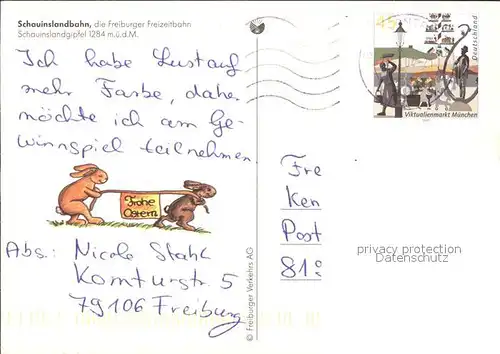 Schauinslandbahn, die Freiburger Freizeitbahn
Schauinslandgipfel 1284 m.ü.d.M.
Ich habe Lust auf
mehr Farbe, daher
möchte ich am Ge-
winnspiel teilnehmen
Frohe
Ostern
Abs: Nicole Stahl
Komturstr. 5
79106 Freiburg
© Freiburger Verkehrs AG
45
Deutschland
Viktualienmarkt München
Fre
Ken
Post
819
privacy protection
Datenschutz